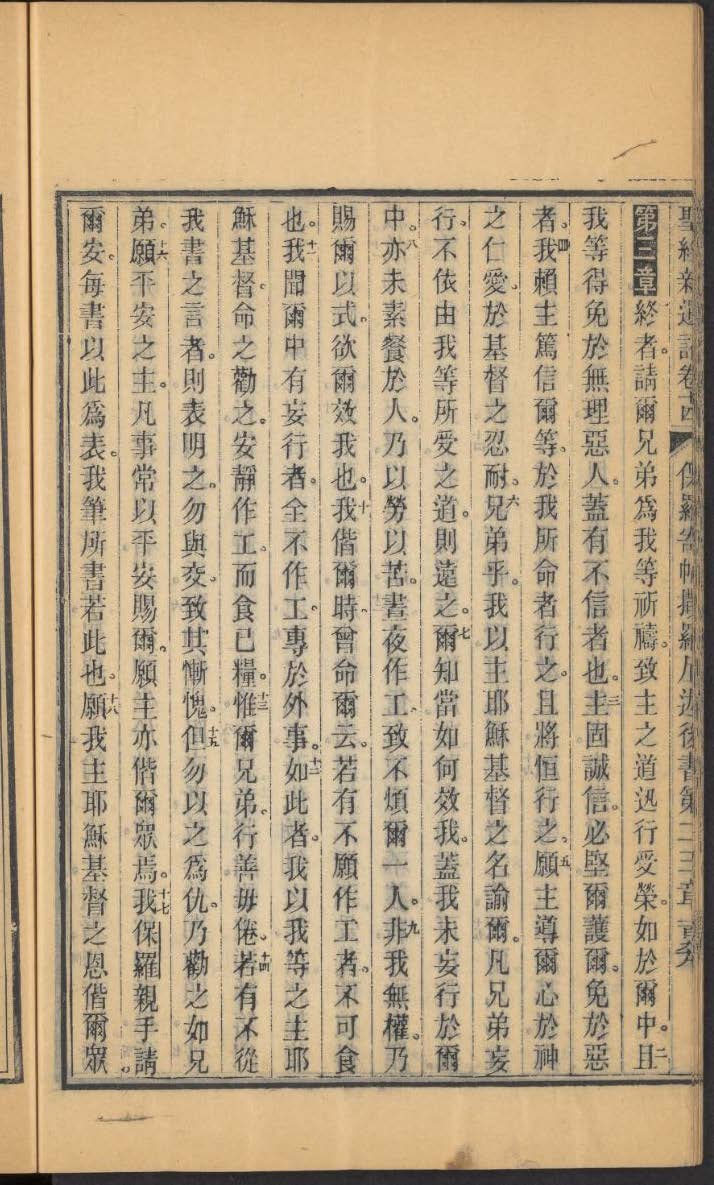 聖經新遺詔卷古 保羅寄帖撒羅尼迦後書第二三章
第三章終者。請爾兄弟爲我等祈禱。致主之道迅行受榮。如於爾中。二且
我等得免於無理惡人。蓋有不信者也。三主固誠信。必堅爾護爾。免於惡
者。四我賴主篤信爾等。於我所命者行之。且將恒行之。五願主導爾心於神
之仁愛。於基督之忍耐。六兄弟乎。我以主耶穌基督之名諭爾。凡兄弟妄
行。不依由我等所受之道。則遠之。七爾知當如何效我。蓋我未妄行於爾
中。八亦未素餐於人。乃以勞以苦。晝夜作工。致不煩爾一人。九非我無權。乃
賜爾以式。欲爾效我也。十我偕爾時。曾命爾云。若有不願作工者。不可食
也。十一我聞爾中有妄行者。全不作工。專於外事。十二如此者。我以我等之主耶
穌基督。命之勸之。安靜作工。而食已糧。十三惟爾兄弟。行善毋倦。十四若有不從
我書之言者。則表明之。勿與交。致其慚愧。十五但勿以之爲仇。乃勸之如兄
弟。十六願平安之主。凡事常以平安賜爾。願主亦偕爾眾焉。十七我保羅親手請
爾安。每書以此爲表。我筆所書若此也。十八願我主耶穌基督之恩偕爾眾。